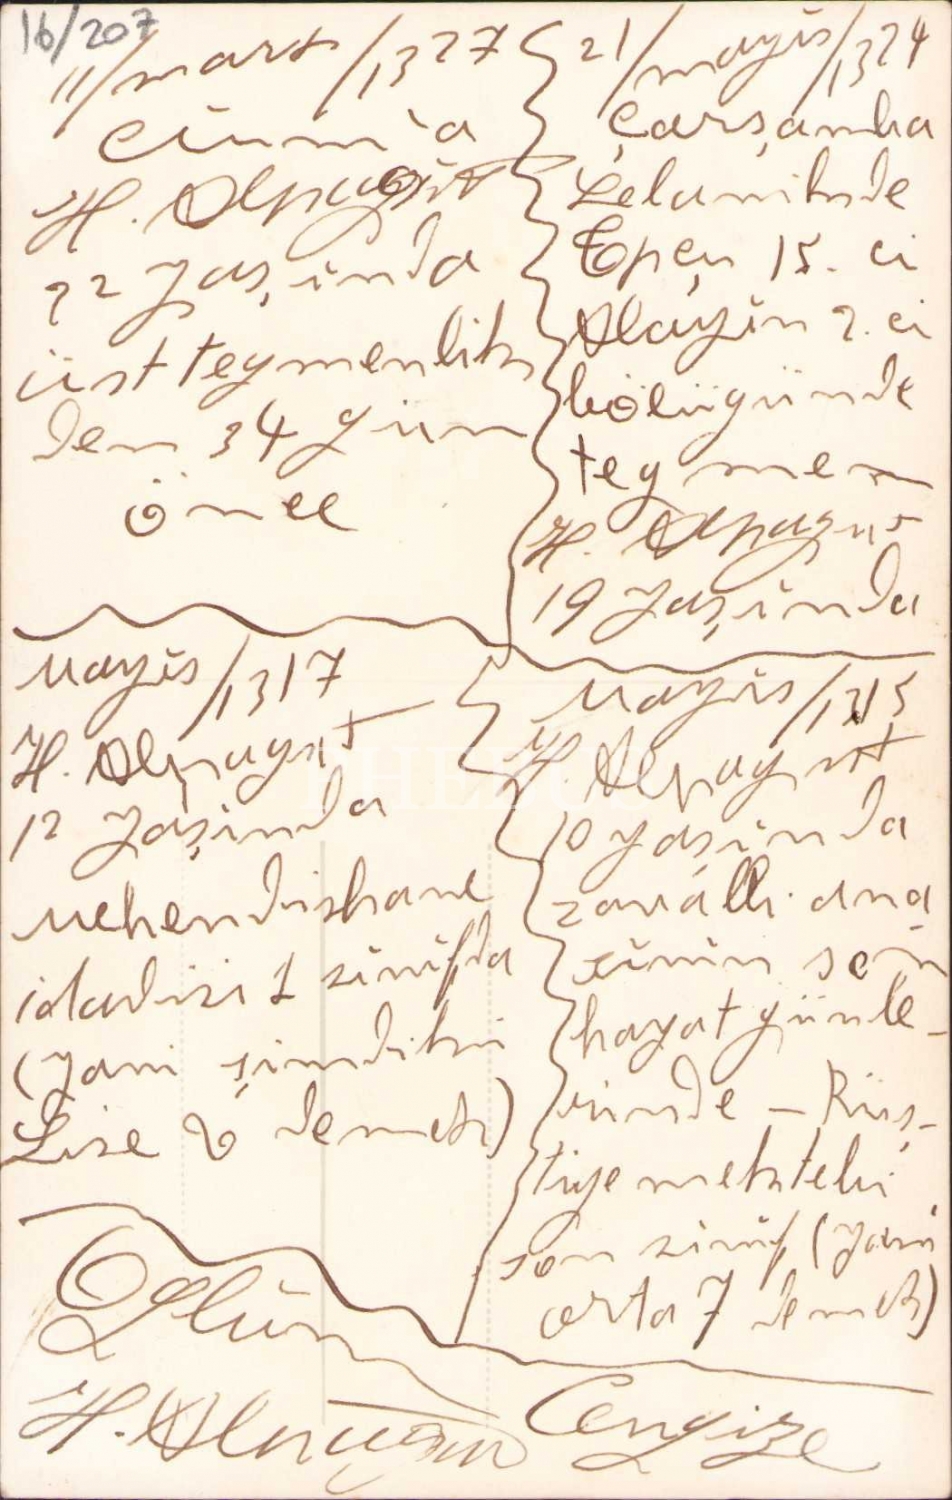 16/207
11/mart/1327
Cüm'a
H. Alpagut
22 yaşında
üstteymenlik
den 34 gün
önce
21/mayis/1324
Çarşamba
Selanikde
15. ci
Alayin 2. ci
bölügünde
teymen
H. Alpagut
19 yaşında
Mayis/1317
H. Alpagut
12 yaşında
Mehendishane
idadisi 1 sinifda
(yani şimdiki
Lise demek)
Mayis/1315
H. Alpagut
10 yaşında
zavallı ana
sinin son
hayat günle-
rinde - Rüş-
tiye mektebi
son sinif (yani
orta 7 demek)
Oğlum
Cengize
H. Alpagut